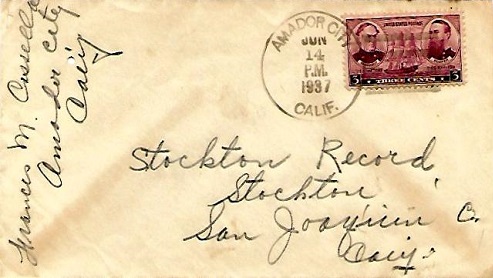 Frances M. Cosella
Amador City
Calif
AMADOR CITY
JUN
14
P.M.
1937
CALIF.
3 THREE CENTS 3
Stockton Record
Stockton
San Joaquin Co.
Calif.